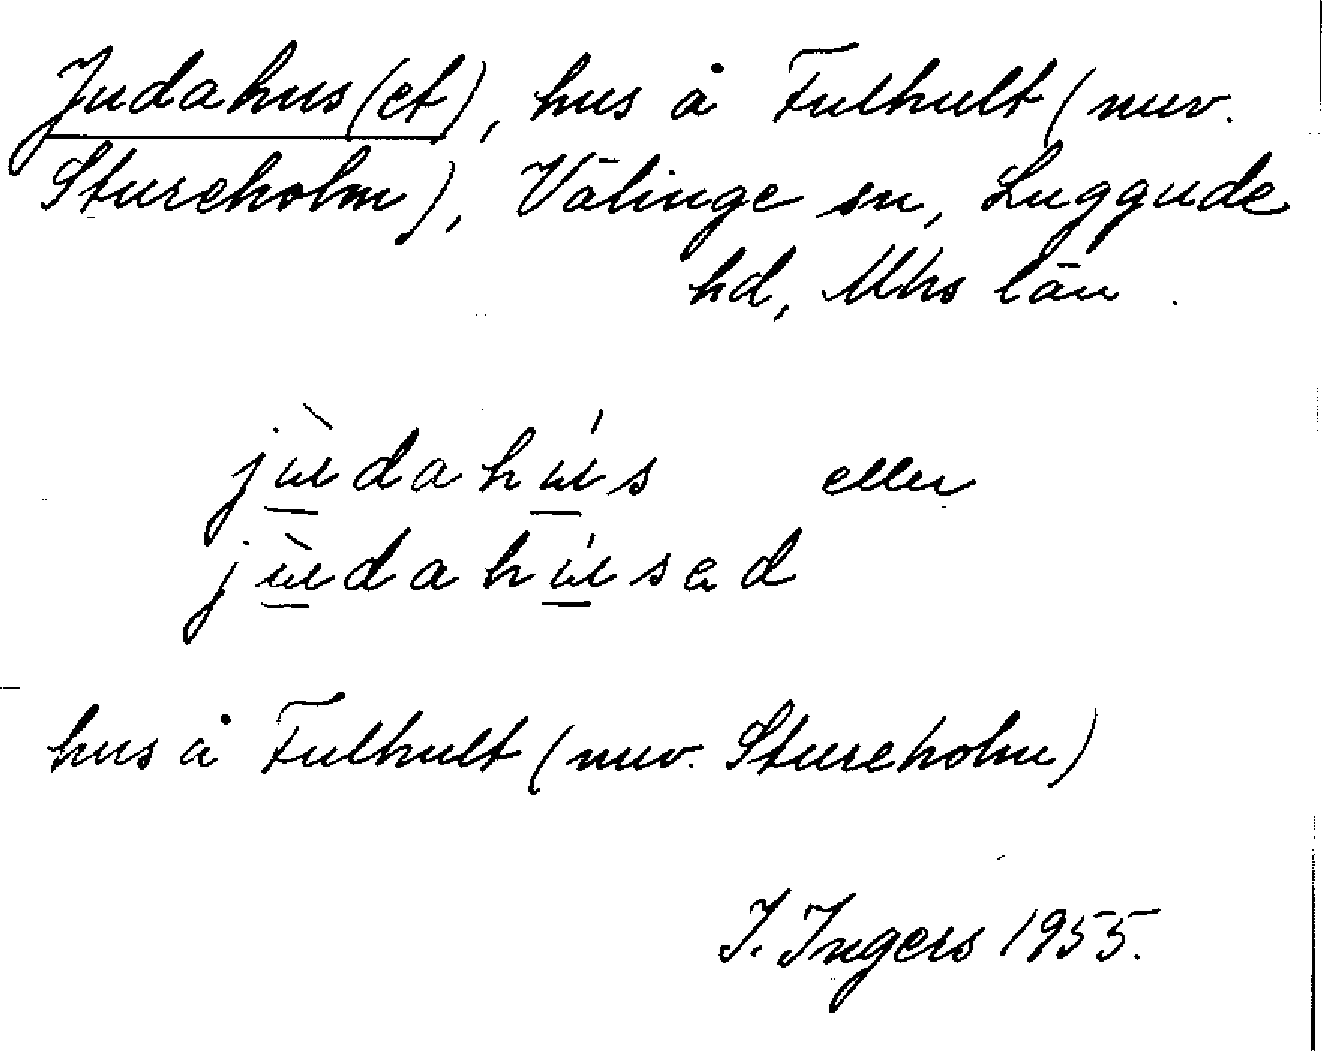 Judahus(et), hus å Fulhult (nuv.
Stureholm), Välinge sn, Luggude
hd, Mhs län.
jùdahús eller
jùdahúsad
hus å Fulhult (nuv. Stureholm)
I. Ingers 1955.